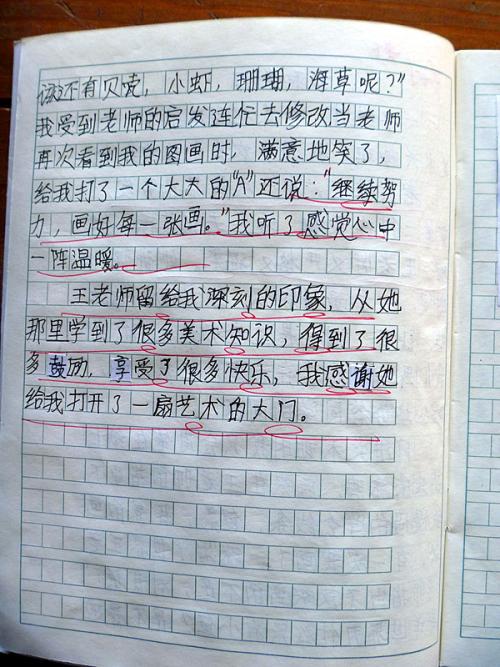 该还有贝壳，小虾，珊瑚，海草呢？”
我受到老师的启发连忙去修改当老师
再次看到我的图画时，满意地笑了，
给我打了一个大大的“A”还说：“继续努
力，画好每一张画。”我听了感觉心中
一阵温暖。
王老师留给我深刻的印象，从她
那里学到了很多美术知识，得到了很
多鼓励，享受了很多快乐，我感谢她
给我打开了一扇艺术的大门。